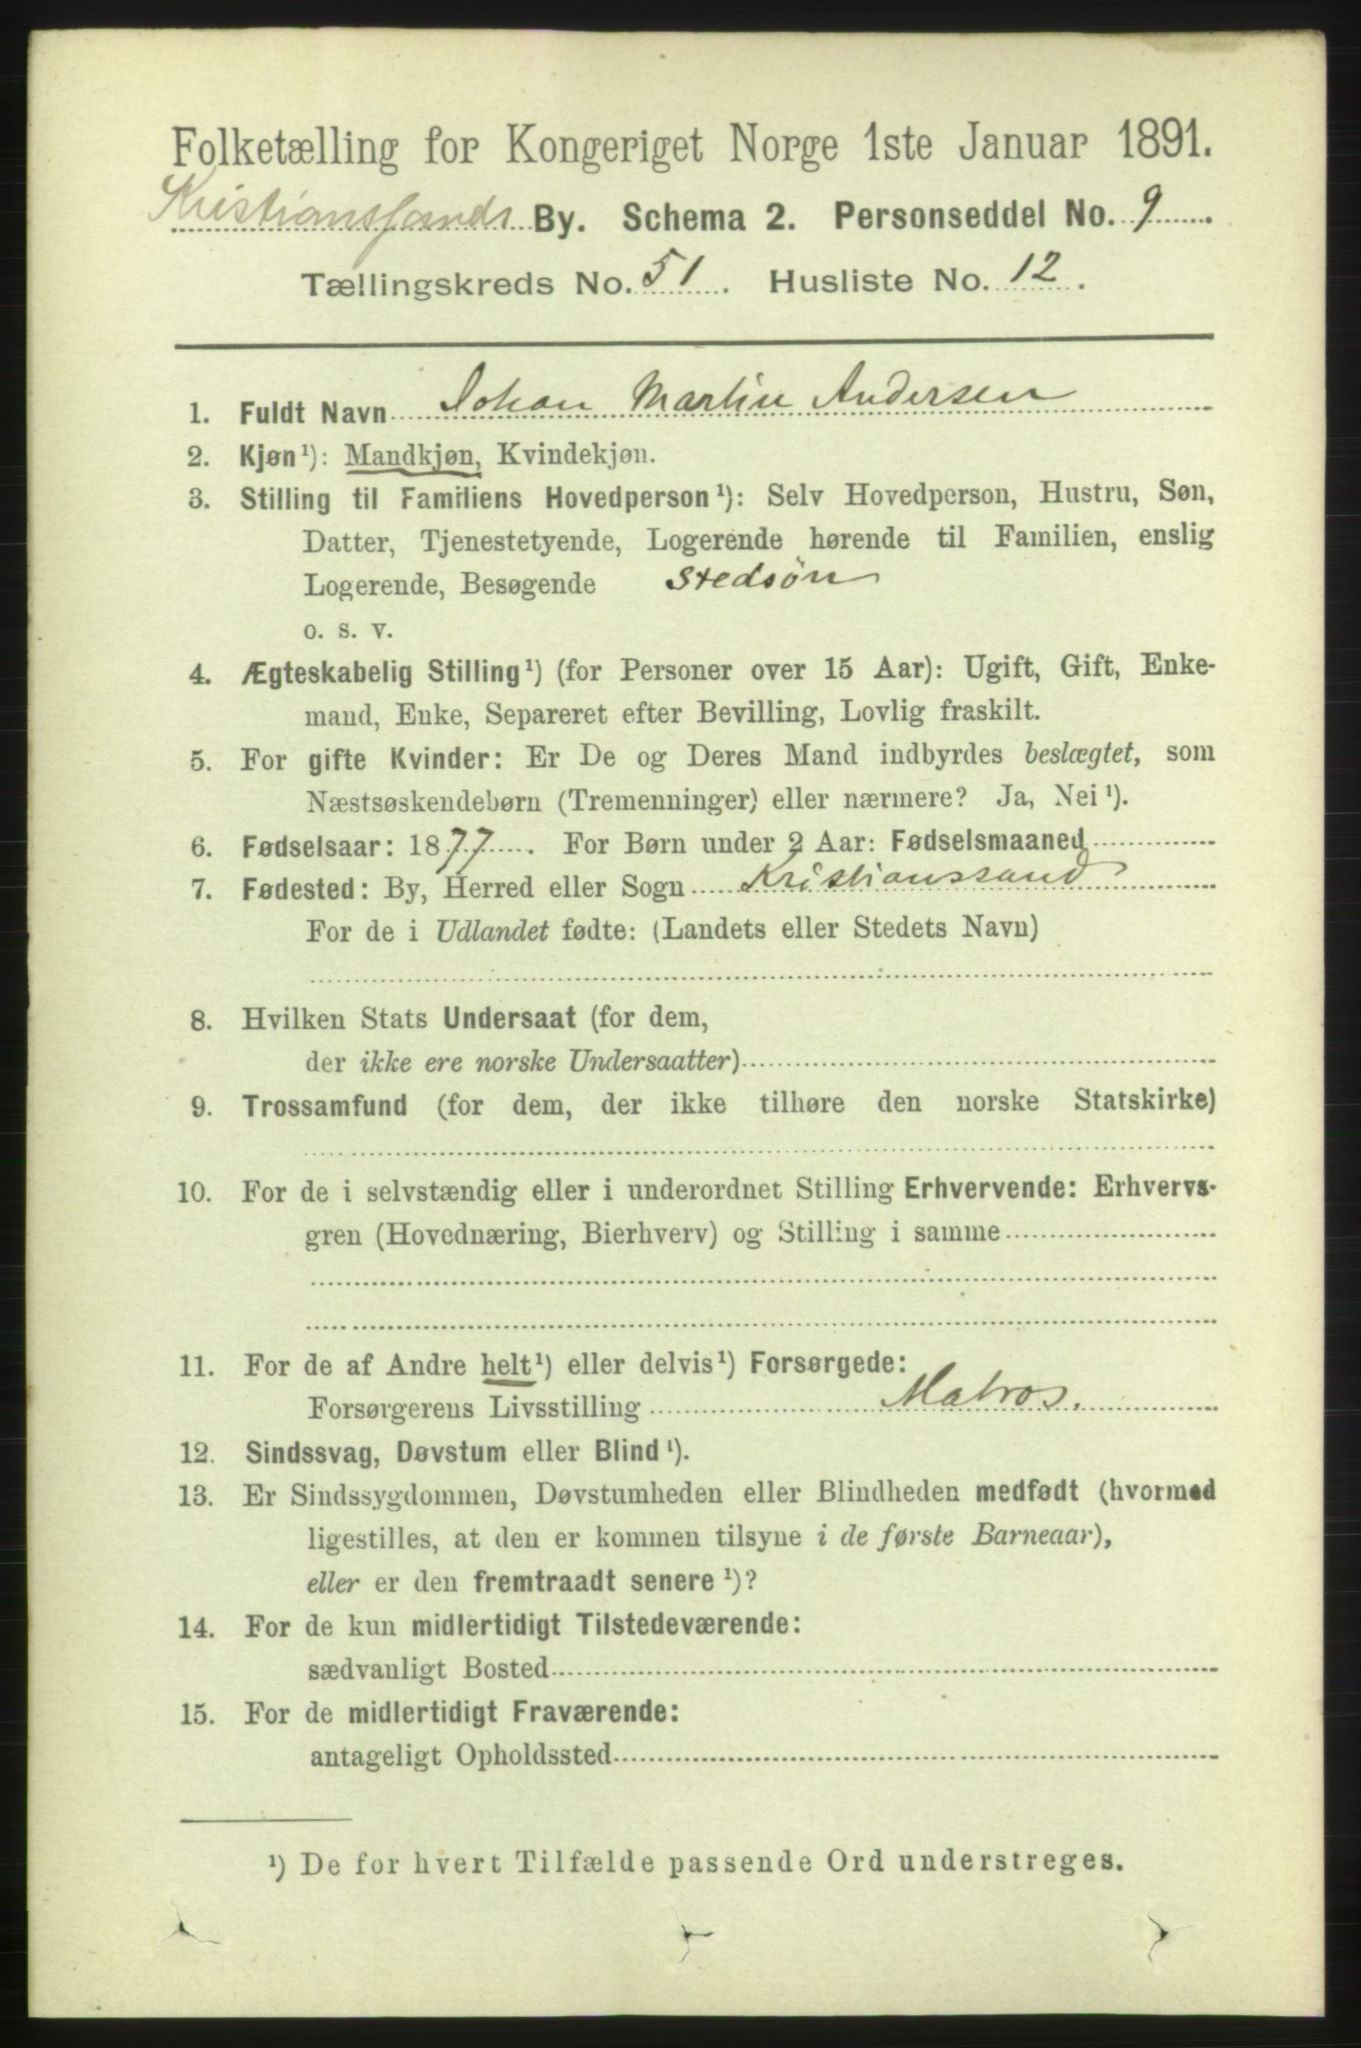 Folketælling for Kongeriget Norge 1ste Januar 1891.
Kristianssands By. Schema 2. Personseddel No. 9
Tællingskreds No. 51. Husliste No. 12.
1. Fuldt Navn Johan Martin Andersen
2. Kjøn¹): Mandkjøn, Kvindekjøn.
3. Stilling til Familiens Hovedperson¹): Selv Hovedperson, Hustru, Søn,
Datter, Tjenestetyende, Logerende hørende til Familien, enslig
Logerende, Besøgende Stedsøn
o. s. v.
4. Ægteskabelig Stilling¹) (for Personer over 15 Aar): Ugift, Gift, Enke-
mand, Enke, Separeret efter Bevilling, Lovlig fraskilt.
5. For gifte Kvinder: Er De og Deres Mand indbyrdes beslægtet, som
Næstsøskendebørn (Tremenninger) eller nærmere? Ja, Nei¹).
6. Fødselsaar: 1877. For Børn under 2 Aar: Fødselsmaaned
7. Fødested: By, Herred eller Sogn Kristianssand
For de i Udlandet fødte: (Landets eller Stedets Navn)
8. Hvilken Stats Undersaat (for dem,
der ikke ere norske Undersaatter)
9. Trossamfund (for dem, der ikke tilhøre den norske Statskirke)
10. For de i selvstændig eller i underordnet Stilling Erhvervende: Erhvervs-
gren (Hovednæring, Bierhverv) og Stilling i samme
11. For de af Andre helt¹) eller delvis¹) Forsørgede:
Forsørgerens Livsstilling Matros.
12. Sindssvag, Døvstum eller Blind¹).
13. Er Sindssygdommen, Døvstumheden eller Blindheden medfødt (hvormed
ligestilles, at den er kommen tilsyne i de første Barneaar),
eller er den fremtraadt senere¹)?
14. For de kun midlertidigt Tilstedeværende:
sædvanligt Bosted
15. For de midlertidigt Fraværende:
antageligt Opholdssted
¹) De for hvert Tilfælde passende Ord understreges.